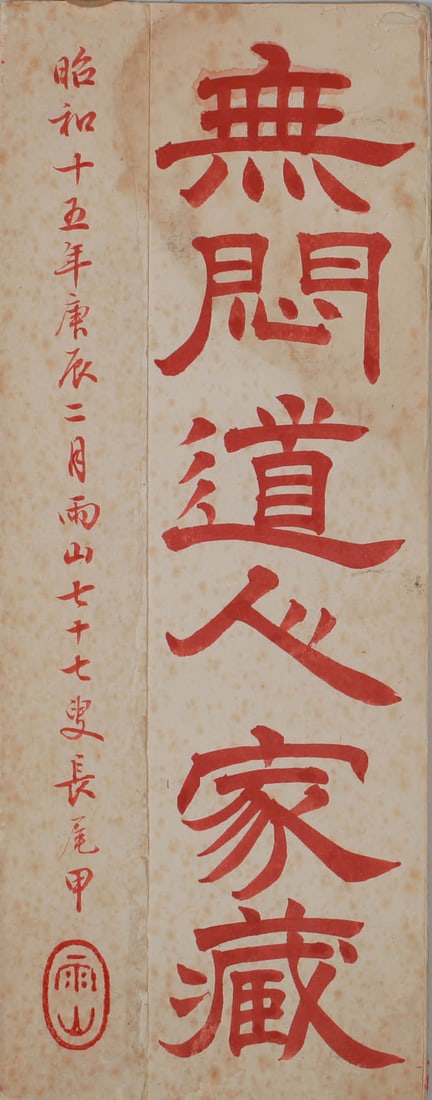 無悶道人家藏
昭和十五年庚辰二月雨山七十七叟長尾甲
雨山